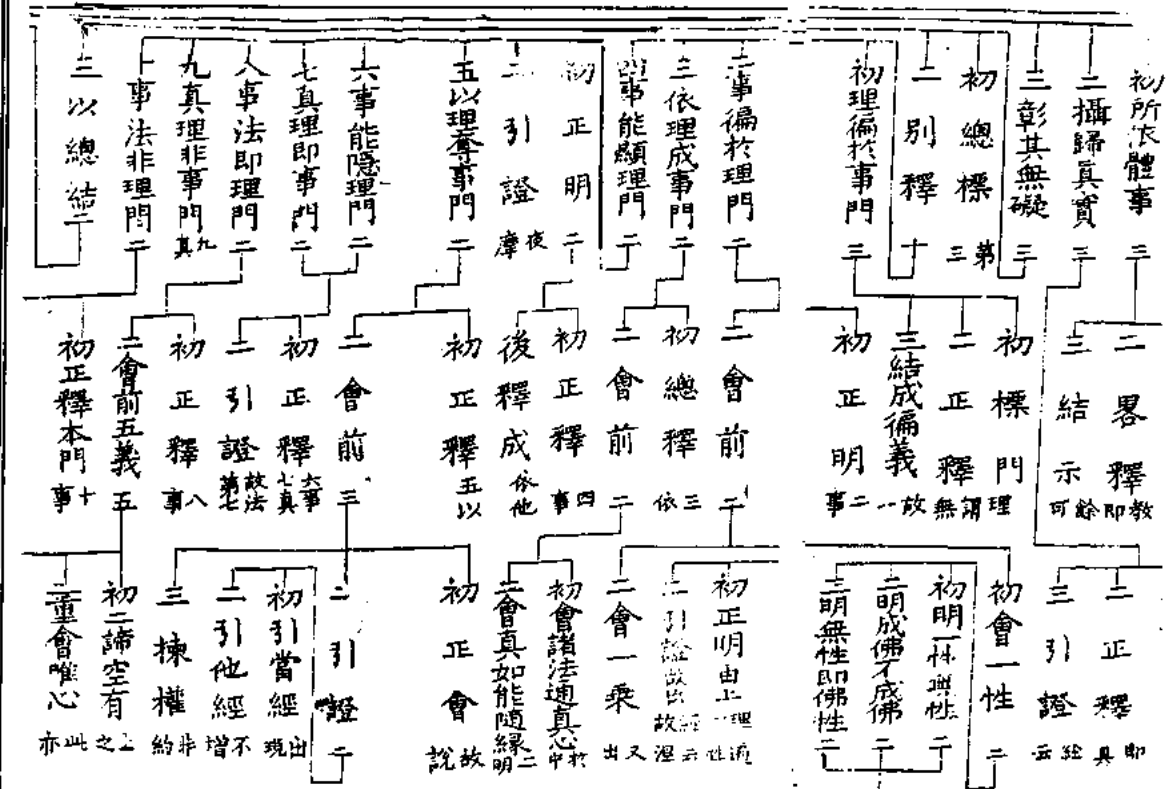 初所依體事三
二攝歸真實三
三彰其無礙三
初總標第三
二別釋十
初理徧於事門三
二事徧於理門二
三依理成事門二
四事能顯理門二
初正明二
二引證夜摩
五以理奪事門二
六事能隱理門二
七真理即事門二
八事法即理門二
九真理非事門九真
十事法非理門二
三以總結二
二畧釋教即
三結示餘可
初標門理
二正釋謂無
三結成徧義故一
初正明二事
二會前二
初總釋三依
二會前二
初正釋四事
後釋成依他
初正釋五以
二會前三
初正釋六事七真
二引證故法第七
初正釋八事
二會前五義五
初正釋本門十事
二正釋即具
三引證經云
初會一性二
初明一性與性二
二明成佛不成佛二
三明無性即佛性二
初正明由上一理通性
二引證故出經云故涅
二會一乘又出
初會諸法通真心於中
二會真如能隨緣二明
初正會故說
二引證二
初引當經出現
二引他經不增
三揀權非約
初二諦空有上之
二重會唯心此亦